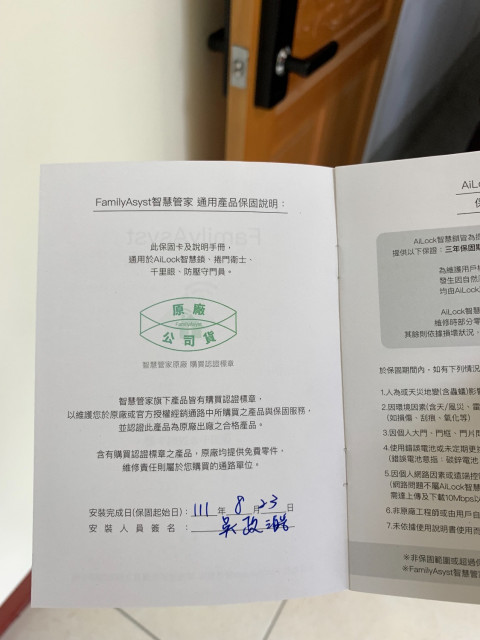 FamilyAsyst智慧管家 通用產品保固說明：
此保固卡及說明手冊，
適用於AiLock智慧鎖、捲門衛士、
千里眼、防壓守門員。
原廠
FamilyAsyst
公司貨
智慧管家原廠 購買認證標章
智慧管家旗下產品皆有購買認證標章，
以維護您於原廠或官方授權經銷通路中所購買之產品與保固服務，
並認證此產品為原廠出廠之合格產品。
含有購買認證標章之產品，原廠均提供免費零件，
維修責任則屬於您購買的通路單位。
安裝完成日(保固起始日)：111年8月23日
安裝人員簽名：吳政
AiLo
保
AiLock智慧鎖皆為原
提供以下保證：三年保固期
為維護用戶權
發生因自然
均由AiLock
AiLock智慧
維修時部分零
其餘則依據損壞狀況，
於保固期間內，如有下列情況
1.人為或天災地變(含蟲蟻)影響
2.因環境因素(含天/風災、雷
(如損傷、刮痕、氧化等)
3.因個人大門、門框、門片問
4.使用錯誤電池或未定期更換
(錯誤電池意指：碳鋅電池
5.因個人網路因素或遠端控
(網路問題不屬AiLock智慧
需達上傳及下載10Mbps以
6.非原廠工程師或由用戶自
7.未依據使用說明書使用而
※非保固範圍或超過保
※FamilyAsyst智慧管